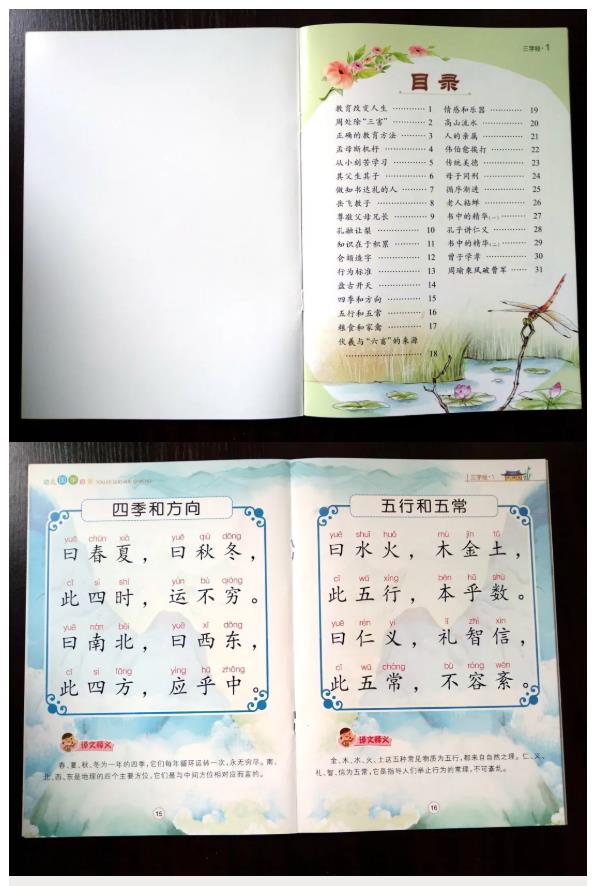 三字经·1
目录
教育改变人生 ………… 1
周处除“三害” ………… 2
正确的教育方法 ……… 3
孟母断机杼 ………… 4
从小刻苦学习 ………… 5
其父生其子 ………… 6
做知书达礼的人 ……… 7
岳飞教子 ………… 8
尊敬父母兄长 ………… 9
孔融让梨 ………… 10
知识在于积累 ………… 11
仓颉造字 ………… 12
行为标准 ………… 13
盘古开天 ………… 14
四季和方向 ………… 15
五行和五常 ………… 16
粮食和家禽 ………… 17
伏羲与“六畜”的来源
………… 18
情感和乐器 ………… 19
高山流水 ………… 20
人的亲属 ………… 21
伟伯愈挨打 ………… 22
传统美德 ………… 23
母子同刑 ………… 24
循序渐进 ………… 25
老人粘蝉 ………… 26
书中的精华(一) ……… 27
孔子讲仁义 ………… 28
书中的精华(二) ……… 29
曾子学章 ………… 30
周瑜乘风破曹军 …… 31
幼儿国学启蒙
四季和方向
yuē chūn xià yuē qiū dōng
曰春夏，曰秋冬，
cǐ sì shí yùn bù qióng
此四时，运不穷。
yuē nán běi yuē xī dōng
曰南北，曰西东，
cǐ sì fāng yìng hū zhōng
此四方，应乎中。
译文释义
春、夏、秋、冬为一年的四季，它们每年循环运转一次，永无穷尽。南、
北、西、东是地理的四个主要方位，它们是与中间方位相对应而言的。
15
三字经·1
五行和五常
yuē shuǐ huǒ mù jīn tǔ
曰水火，木金土，
cǐ wǔ xíng běn hū shù
此五行，本乎数。
yuē rén yì lǐ zhì xìn
曰仁义，礼智信，
cǐ wǔ cháng bù róng wěn
此五常，不容紊。
译文释义
金、木、水、火、土这五种常见物质为五行，都来自自然之理。仁、义、
礼、智、信为五常，它是指导人们举止行为的常理，不可紊乱。
16